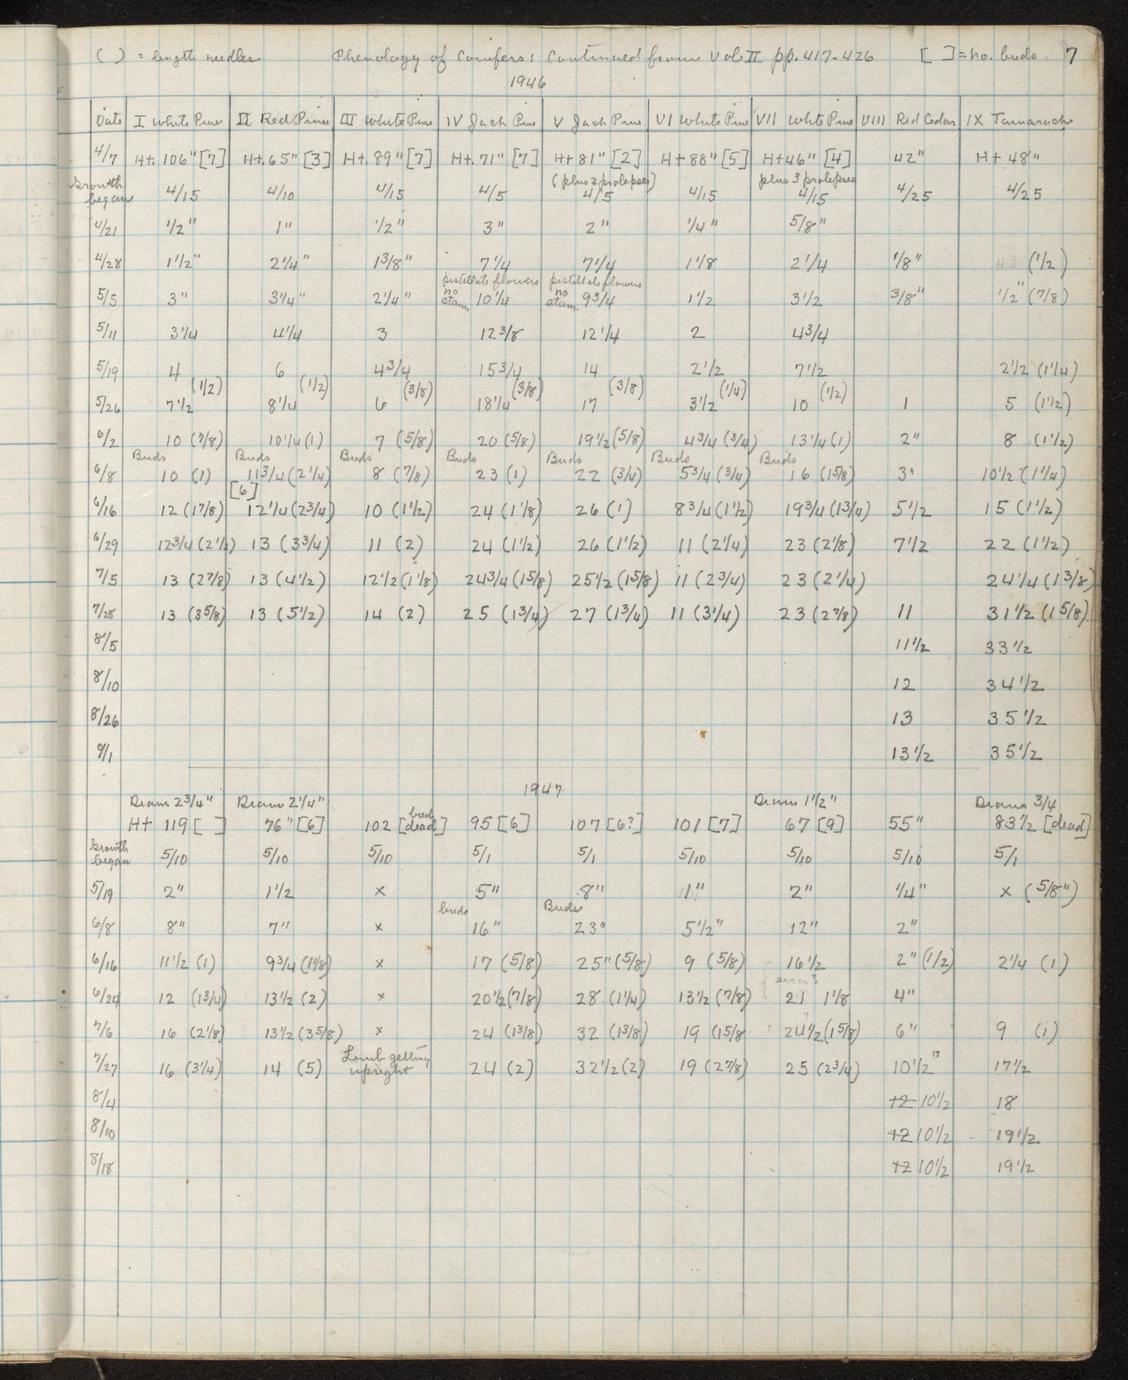 ( ) = length needles Phenology of Conifers: Continued from Vol II pp. 417-426 [ ] = no. buds 7
1946
Date I White Pine II Red Pine III White Pine IV Jack Pine V Jack Pine VI White Pine VII White Pine VIII Red Cedar IX Tamarack
4/7 Ht. 106" [7] Ht. 65" [3] Ht. 89" [7] Ht. 71" [7] Ht 81" [2] Ht 88" [5] Ht 46" [4] 42" Ht 48"
(plus 2 prolepses) plus 3 prolepses
Growth began 4/15 4/10 4/15 4/5 4/5 4/15 4/15 4/25 4/25
4/21 1/2" 1" 1/2" 3" 2" 1/4" 5/8"
4/28 1 1/2" 2 1/4" 1 3/8" 7 1/4 7 1/4 1 1/8 2 1/4 1/8" (1/2)
pistillate flowers pistillate flowers
5/5 3" 3 1/4" 2 1/4" no stam. 10 1/4 no stam. 9 3/4 1 1/2 3 1/2 3/8" 1/2" (7/8)
5/11 3 1/4 4 1/4 3 12 3/8 12 1/4 2 4 3/4
5/19 4 6 4 3/4 15 3/4 14 2 1/2 7 1/2 2 1/2 (1 1/4)
(1/2) (1/2) (3/8) (3/8) (3/8) (1/4) (1/2)
5/26 7 1/2 8 1/4 6 18 1/4 17 3 1/2 10 1 5 (1 1/2)
6/2 10 (7/8) 10 1/4 (1) 7 (5/8) 20 (5/8) 19 1/2 (5/8) 4 3/4 (3/4) 13 1/4 (1) 2" 8 (1 1/2)
Buds Buds Buds Buds Buds Buds Buds
6/8 10 (1) 11 3/4 (2 1/4) 8 (7/8) 23 (1) 22 (3/4) 5 3/4 (3/4) 16 (1 5/8) 3" 10 1/2 (1 1/4)
[6]
6/16 12 (1 7/8) 12 1/4 (2 3/4) 10 (1 1/2) 24 (1 1/8) 26 (1) 8 3/4 (1 1/2) 19 3/4 (1 3/4) 5 1/2 15 (1 1/2)
6/29 12 3/4 (2 1/2) 13 (3 3/4) 11 (2) 24 (1 1/2) 26 (1 1/2) 11 (2 1/4) 23 (2 1/8) 7 1/2 22 (1 1/2)
7/5 13 (2 7/8) 13 (4 1/2) 12 1/2 (1 1/8) 24 3/4 (1 5/8) 25 1/2 (1 5/8) 11 (2 3/4) 23 (2 1/4) 24 1/4 (1 3/8)
7/28 13 (3 5/8) 13 (5 1/2) 14 (2) 25 (1 3/4) 27 (1 3/4) 11 (3 1/4) 23 (2 7/8) 11 31 1/2 (1 5/8)
8/5 11 1/2 33 1/2
8/10 12 34 1/2
8/26 13 35 1/2
9/1 13 1/2 35 1/2
1947
Diam 2 3/4" Diam 2 1/4" Diam 1 1/2" Diam 3/4
Ht 119 [ ] 76" [6] 102 [bud dead] 95 [6] 107 [6?] 101 [7] 67 [9] 55" 83 1/2 [dead]
Growth began 5/10 5/10 5/10 5/1 5/1 5/10 5/10 5/10 5/1
5/19 2" 1 1/2 x 5" 8" 1" 2" 1/4" x (5/8")
buds Buds
6/8 8" 7" x 16" 23" 5 1/2" 12" 2"
6/16 11 1/2 (1) 9 3/4 (1 1/8) x 17 (5/8) 25" (5/8) 9 (5/8) 16 1/2 2" (1/2) 2 1/4 (1)
6/24 12 (1 3/4) 13 1/2 (2) x 20 1/2 (7/8) 28 (1 1/4) 13 1/2 (7/8) 21 1 1/8 4"
7/6 16 (2 1/8) 13 1/2 (3 5/8) x 24 (1 3/8) 32 (1 3/8) 19 (1 5/8 24 1/2 (1 5/8) 6" 9 (1)
7/27 16 (3 1/4) 14 (5) Limb getting upright 24 (2) 32 1/2 (2) 19 (2 7/8) 25 (2 3/4) 10 1/2" 17 1/2
8/4 12 10 1/2 18
8/10 12 10 1/2 19 1/2
8/18 12 10 1/2 19 1/2